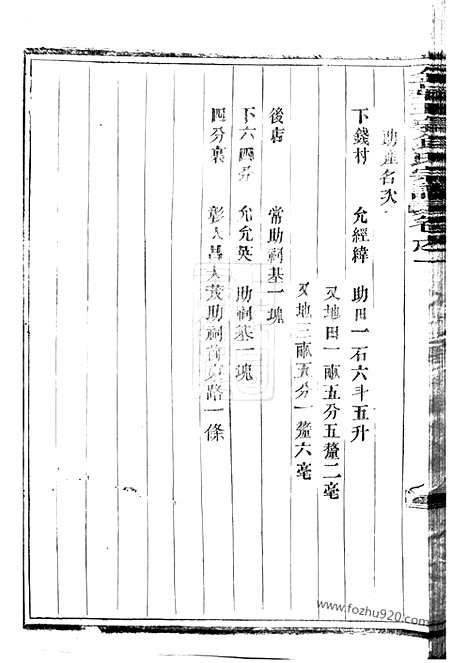 助產名次
下錢村 允經緯 助田一石六斗五升
又地田一畝五分五釐二毫
又地三畝五分一釐六毫
後店 常助祠基一塊
下六四分 允允英 助祠基一塊
四分裏 彰人昌人 助祠前 路一條
www.fozhu920.com